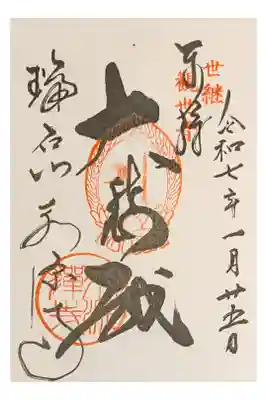 令和七年一月廿五日
世継
観世音
奉拝
大悲殿
瑞石山永源寺